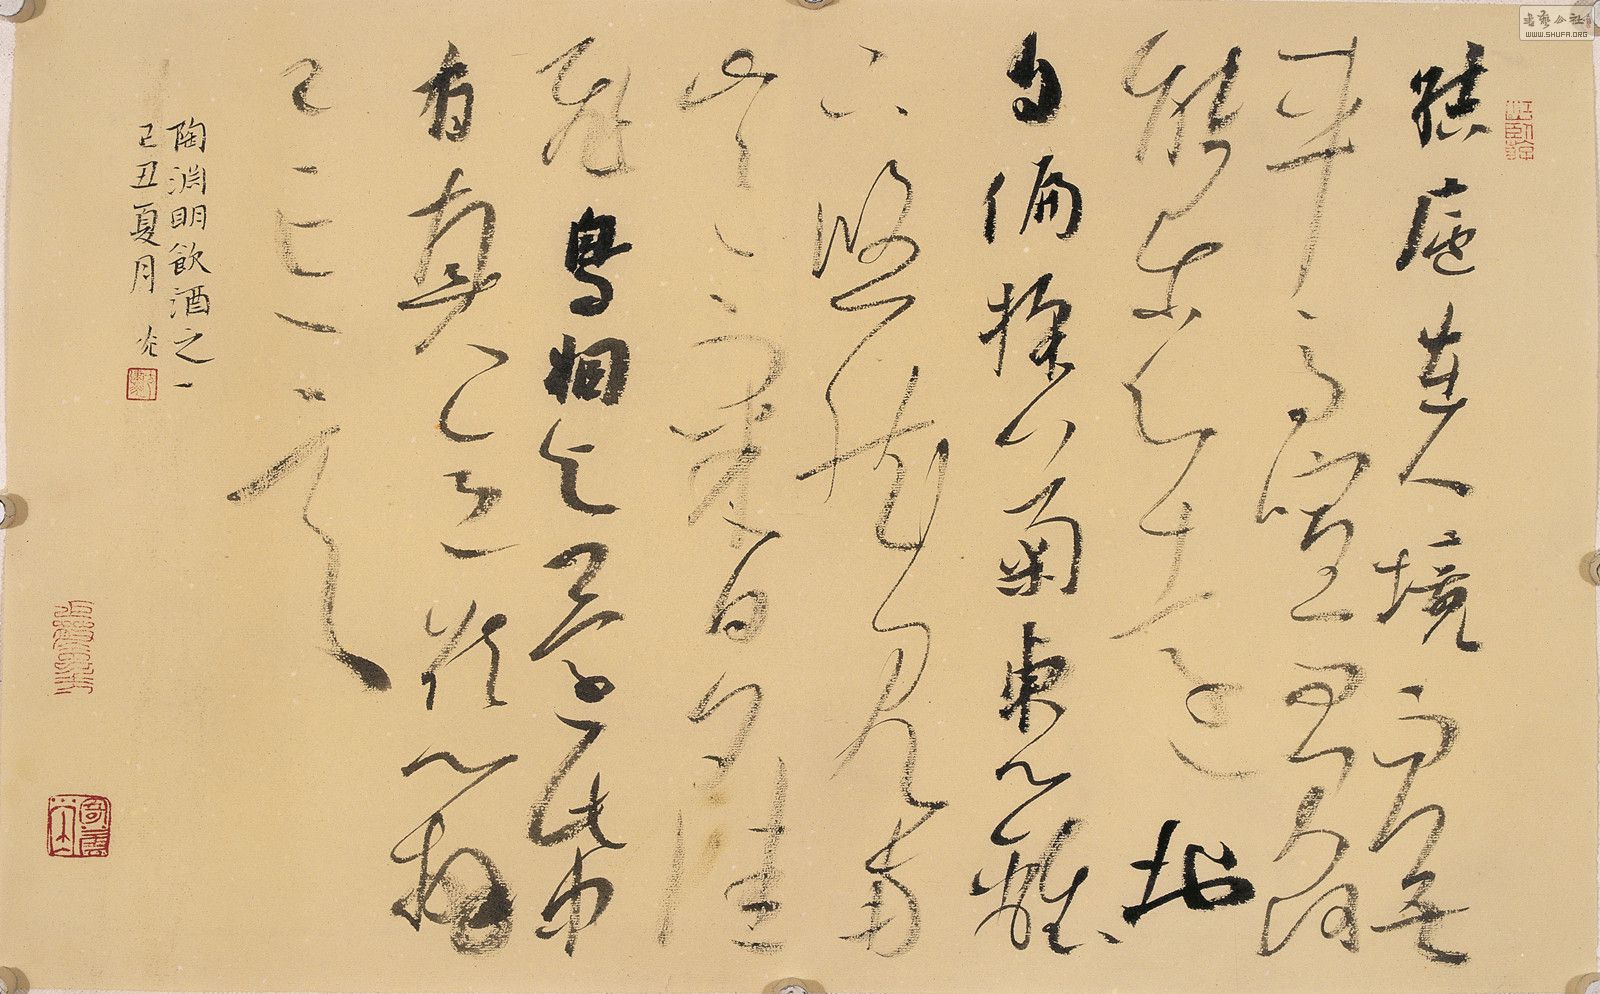 結廬在人境而無
車馬喧問君何
能尔心遠地
自偏採菊東籬
下悠然見南
山〻氣日夕佳
飛鳥相與還此中
有真意欲辨
已忘言
陶淵明飲酒之一
己丑夏月
WWW.SHUFA.ORG